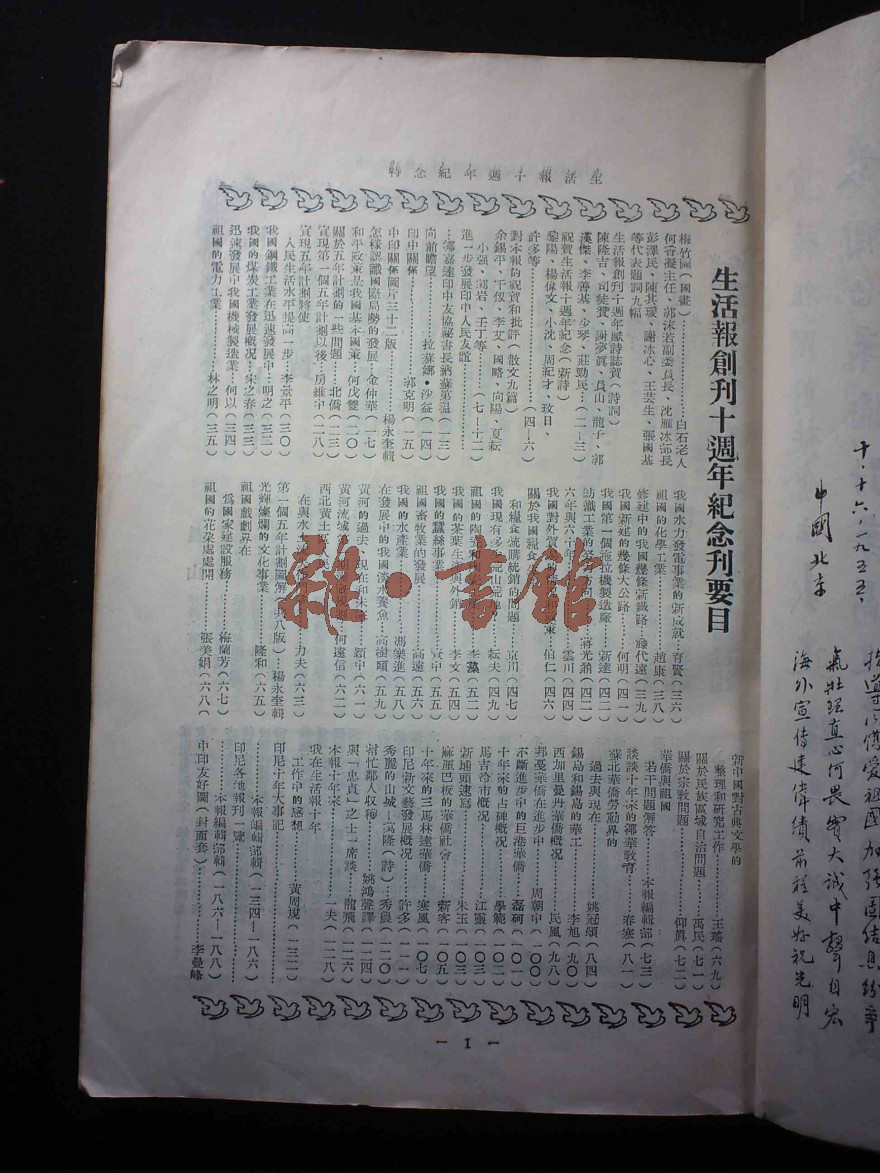 生活報十週年紀念特
生活報創刊十週年紀念刊要目
梅竹圖(國畫)……白石老人
何香凝主任、郭沫若副委員長、沈雁冰部長
彭澤民、陳其瑗、謝冰心、王芸生、張國基
等代表題詞九幅
生活報創刊十週年獻詩誌賀(詩詞)
陳隆吉、司徒贊、謝夢眞、員山、龍子、郭
漢傑、李善基、少琴、莊勁民…(二—三)
祝賀生活報十週年紀念(新詩)
黎陽、楊偉文、小沈、周紀才、玟日、
許多等……(四—六)
對本報的祝賀和批評(散文九篇)
余錫平、千馭、李艾、國略、向陽、夏耘
小强、寓岩、王丁等……(七—十二)
進一步發展印中人民友誼
…鄒嘉達印中友協秘書長納蘇第溫(一三)
向前瞻望……拉蘇娜•沙益(一四)
印中關係……郭克明(一五)
中印關係圖片三十二版……楊永奎輯
怎樣認識國際局勢的發展…金仲華(一七)
和平政策是我國基本國策…何戊雙(二〇)
關於五年計劃的一些問題…北僑(二三)
實現第一個五年計劃以後…房維中(二八)
實現五年計劃將使
人民生活水平提高一步…李景平(三〇)
我國鋼鐵工業在迅速發展中…明之(三二)
我國的煤炭工業發展概況…宋之春(三三)
迅速發展中我國機械製造業…何以(三四)
祖國的電力工業……林之明(三五)
我國水力發電事業的新成就…育賢(三六)
祖國的化學工業……趙康(三八)
修建中的我國幾條新鐵路…滕代遠(三九)
我國新延的幾條大公路……何明(四一)
我國第一個拖拉機製造廠……新達(四二)
紡織工業的……蔣光鼐(四二)
六年與六十年……雲川(四四)
我國對外貿易……和政策…伯仁(四六)
關於我國糧食生
和糧食統購統銷的問題……京川(四七)
我國現有多……荒山荒地……耘夫(四九)
祖國的陶瓷和……李鷊(五二)
我國的茶葉生產與外銷……李文(五四)
我國的蠶絲事業……寅中(五五)
祖國畜牧業的發展……高遠(五六)
我國的水產業……馮樂進(五八)
在發展中的我國淡水養魚…高樹頤(五九)
黃河的過去、現在和未來……穎中(六一)
黃河流域……何遠信(六二)
西北黃土區……民
在與水……力夫(六三)
第一個五年計劃圖解(共八版)…楊永奎輯
光輝燦爛的文化事業……隆和(六五)
祖國戲劇界在
爲國家建設服務……梅蘭芳(六七)
祖國的花朵處處開……張美娟(六八)
新中國對古典文學的
整理和研究工作……王瑤(六九)
關於民族區域自治問題……萬民(七一)
關於宗敎問題……仰眞(七二)
華僑與祖國
若干問題解答……本報編輯部(七三)
談談十年來的椰華敎育……春寒(八一)
蘇北華僑勞勤界的
過去與現在……姚冠頌(八四)
錫島和錫島的華工……李旭(九〇)
西加里曼丹華僑概況……民風(九八)
邦戞華僑在進步中……周朝中(一〇〇)
不斷進步中的巨港華僑……磊砢(一〇一)
十年來的占碑概況……學範(一〇二)
馬吉冷市概況……江靈(一〇三)
新埔頭速寫……朱玉(一〇三)
麻厘巴板的華僑社會……新客(一〇五)
十年來的三馬林達華僑……寒風(一〇七)
印尼新文藝發展概況……許多(一一一)
秀麗的山城—萬隆(詩)…秀農(一二〇)
幫忙鄰人收穫……姚鴻聲譯(一二四)
與「忠貞」之士一席談……龍飛(一二六)
本報十年來……一夫(一二八)
我在生活報十年
工作中的感想……黃周規(一三二)
印尼十年大事記
……本報編輯部輯(一三四—一八六)
印尼各地報刊一覽
……本報編輯部輯(一八六—一八八)
中印友好圖(封面套)……李曼峰
－1－
雜·書館
十·十六·一九五五·
中國北京
指導 愛祖國加强團結息紛爭
氣壯理直心何畏實大誠中聲自宏
海外宣傳建偉績前程美好祝光明